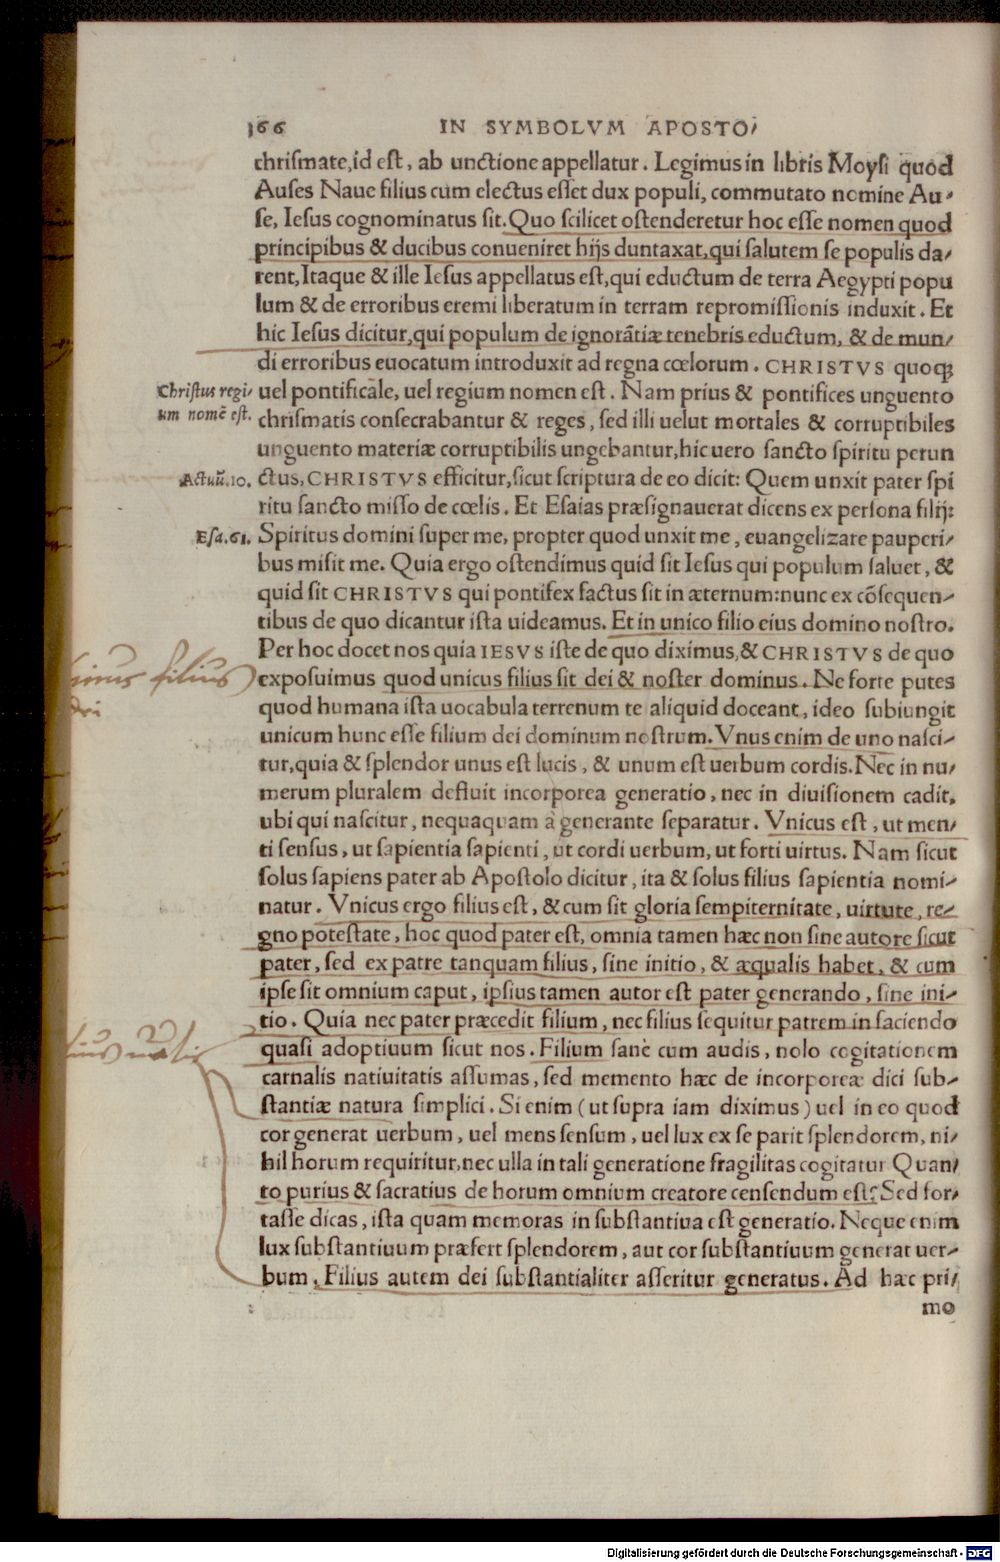 166 IN SYMBOLVM APOSTO/
chriſmate,id eſt, ab unctione appellatur. Legimus in libris Moyſi quod
Auſes Naue filius cum electus eſſet dux populi, commutato nomine Au/
ſe, Ieſus cognominatus ſit. Quo ſcilicet oſtenderetur hoc eſſe nomen quod
principibus & ducibus conueniret hijs duntaxat, qui ſalutem ſe populis da/
rent, Itaque & ille Ieſus appellatus eſt, qui eductum de terra Aegypti popu
lum & de erroribus eremi liberatum in terram repromiſſionis induxit. Et
hic Ieſus dicitur, qui populum de ignorãtiæ tenebris eductum, & de mun/
di erroribus euocatum introduxit ad regna cœlorum. CHRISTVS quoqꝫ
Chriſtus regi/
um nomẽ eſt.
uel pontificale, uel regium nomen eſt. Nam prius & pontifices unguento
chriſmatis conſecrabantur & reges, ſed illi uelut mortales & corruptibiles
unguento materiæ corruptibilis ungebantur, hic uero ſancto ſpiritu perun
Actuũ.10.
ctus, CHRISTVS efficitur, ſicut ſcriptura de eo dicit: Quem unxit pater ſpi
ritu ſancto miſſo de cœlis. Et Eſaias præſignauerat dicens ex perſona filij:
Eſa.61.
Spiritus domini ſuper me, propter quod unxit me, euangelizare pauperi/
bus miſit me. Quia ergo oſtendimus quid ſit Ieſus qui populum ſaluet, &
quid ſit CHRISTVS qui pontifex factus ſit in æternum: nunc ex cõſequen/
tibus de quo dicantur iſta uideamus. Et in unico filio eius domino noſtro.
Per hoc docet nos quia IESVS iſte de quo diximus, & CHRISTVS de quo
filius
dei
expoſuimus quod unicus filius ſit dei & noſter dominus. Ne forte putes
quod humana iſta uocabula terrenum te aliquid doceant, ideo ſubiungit
unicum hunc eſſe filium dei dominum noſtrum. Vnus enim de uno naſci/
tur, quia & ſplendor unus eſt lucis, & unum eſt uerbum cordis. Nec in nu/
merum pluralem defluit incorporea generatio, nec in diuiſionem cadit,
ubi qui naſcitur, nequaquam à generante ſeparatur. Vnicus eſt, ut men/
ti ſenſus, ut ſapientia ſapienti, ut cordi uerbum, ut forti uirtus. Nam ſicut
ſolus ſapiens pater ab Apoſtolo dicitur, ita & ſolus filius ſapientia nomi/
natur. Vnicus ergo filius eſt, & cum ſit gloria ſempiternitate, uirtute, re/
gno poteſtate, hoc quod pater eſt, omnia tamen hæc non ſine autore ſicut
pater, ſed ex patre tanquam filius, ſine initio, & æqualis habet, & cum
ipſe ſit omnium caput, ipſius tamen autor eſt pater generando, ſine ini/
tio. Quia nec pater præcedit filium, nec filius ſequitur patrem in faciendo
quaſi adoptiuum ſicut nos. Filium ſanè cum audis, nolo cogitationem
carnalis natiuitatis aſſumas, ſed memento hæc de incorporeæ dici ſub/
ſtantiæ natura ſimplici. Si enim (ut ſupra iam diximus) uel in eo quod
cor generat uerbum, uel mens ſenſum, uel lux ex ſe parit ſplendorem, ni/
hil horum requiritur, nec ulla in tali generatione fragilitas cogitatur Quan/
to purius & ſacratius de horum omnium creatore cenſendum eſt? Sed for/
taſſe dicas, iſta quam memoras in ſubſtantiua eſt generatio. Neque enim
lux ſubſtantiuum præfert ſplendorem, aut cor ſubſtantiuum generat uer/
bum. Filius autem dei ſubſtantialiter aſſeritur generatus. Ad hæc pri/
mo
Digitalisierung gefördert durch die Deutsche Forschungsgemeinschaft - DFG